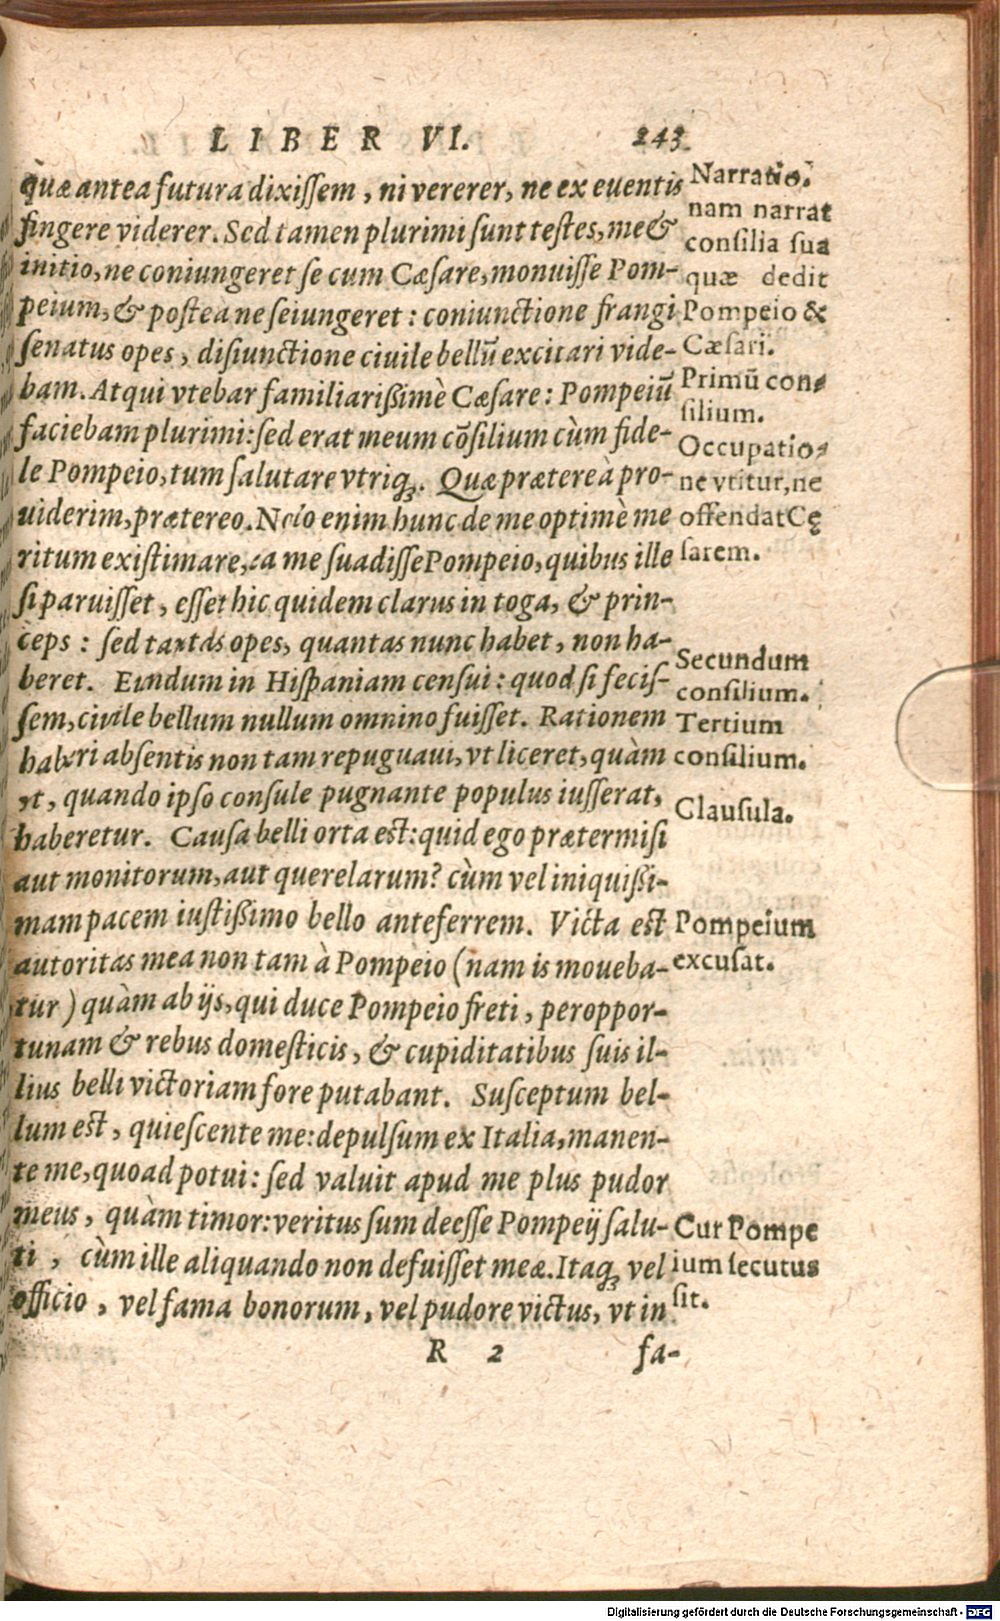 LIBER VI. 243
quæ antea futura dixiſſem, ni vererer, ne ex euentis
fingere viderer. Sed tamen plurimi ſunt teſtes, me &
initio, ne coniungeret ſe cum Cæſare, monuiſſe Pom-
peium, & poſtea ne ſeiungeret: coniunctione frangi
ſenatus opes, diſiunctione ciuile bellū excitari vide-
bam. Atqui vtebar familiarißimè Cæſare: Pompeiū
faciebam plurimi: ſed erat meum cōſilium cùm fide-
le Pompeio, tum ſalutare vtriq;. Quæ præterea pro-
uiderim, prætereo. Nolo enim hunc de me optimè me
ritum exiſtimare, ea me ſuadiſſe Pompeio, quibus ille
ſi paruiſſet, eſſet hic quidem clarus in toga, & prin-
ceps: ſed tantas opes, quantas nunc habet, non ha-
beret. Eundum in Hiſpaniam cenſui: quod ſi feciſ-
ſem, ciuile bellum nullum omnino fuiſſet. Rationem
haberi abſentis non tam repuguaui, vt liceret, quàm
vt, quando ipſo conſule pugnante populus iuſſerat,
haberetur. Cauſa belli orta eſt: quid ego prætermiſi
aut monitorum, aut querelarum? cùm vel iniquißi-
mam pacem iuſtißimo bello anteferrem. Victa eſt
autoritas mea non tam à Pompeio (nam is moueba-
tur) quàm ab ijs, qui duce Pompeio freti, peroppor-
tunam & rebus domeſticis, & cupiditatibus ſuis il-
lius belli victoriam fore putabant. Suſceptum bel-
lum eſt, quieſcente me: depulſum ex Italia, manen-
te me, quoad potui: ſed valuit apud me plus pudor
meus, quàm timor: veritus ſum deeſſe Pompeij ſalu-
ti, cùm ille aliquando non defuiſſet meæ. Itaq; vel
officio, vel fama bonorum, vel pudore victus, vt in
R 2 fa-
Narratio.
nam narrat
conſilia ſua
quæ dedit
Pompeio &
Cæſari.
Primū con-
ſilium.
Occupatio-
ne vtitur, ne
offendat Cę
ſarem.
Secundum
conſilium.
Tertium
conſilium.
Clauſula.
Pompeium
excuſat.
Cur Pompe
ium ſecutus
ſit.
Digitalisierung gefördert durch die Deutsche Forschungsgemeinschaft - DFG